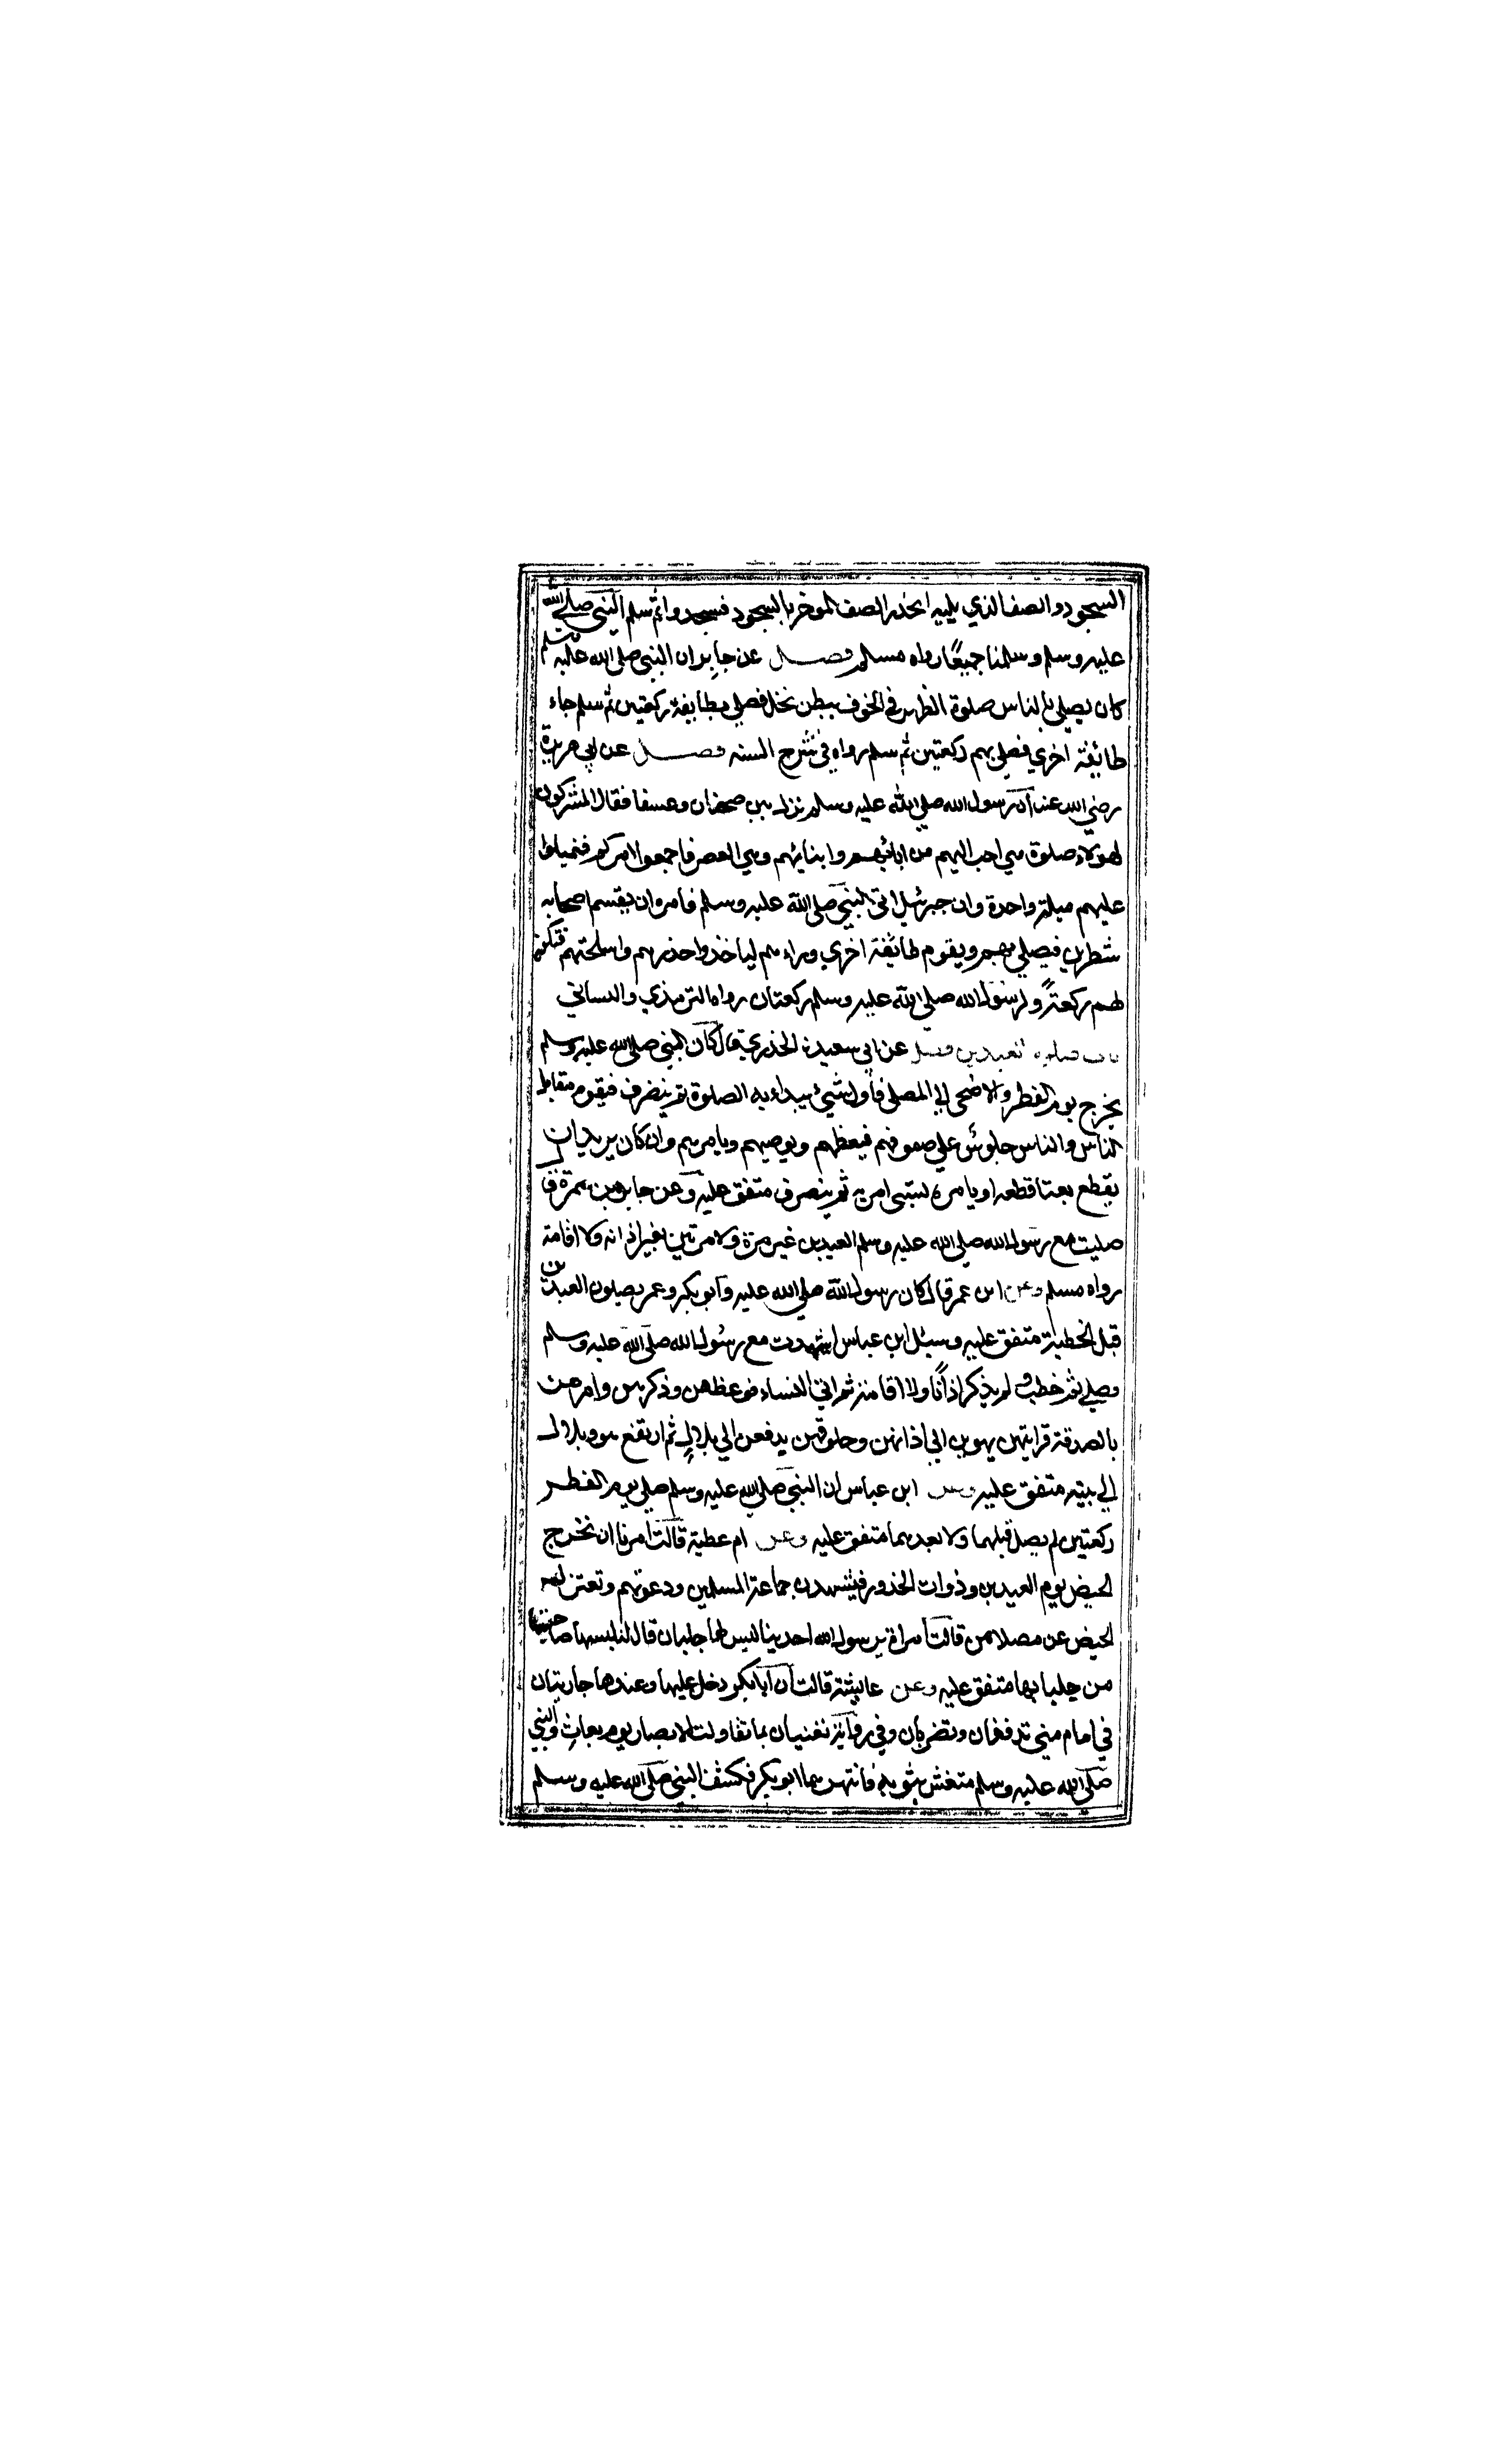 السجود والصف الذي يليه انحدر الصف الموخر بالسجود فسجدوا ثم سلم النبي صلى الله
عليه وسلم وسلمنا جميعًا رواه مسلم فصل عن جابر ان النبي صلى الله عليه وسلم
كان يصلي بالناس صلوة الظهر في الخوف ببطن نخل فصلي بطايفة ركعتين ثم سلم جاء
طائفة اخري فصلي بهم ركعتين ثم سلم رواه في شرح السنه فصل عن ابي هريرة
رضي الله عنه ان رسول الله صلي الله عليه وسلم نزل بين ضجنان وعسفا فقال المشركون
لهولاء صلوة هي احب اليهم من ابائهم وابنايهم وهي العصر فاجمعوا امركم فتميلوا
عليهم ميلة واحدة وان جبرئيل اتى النبي صلى الله عليه وسلم فامره ان يقسم اصحابه
شطرين فيصلي بهم ويقوم طائفة اخري وراءهم لياخذوا حذرهم واسلحتهم فتكون
لهم ركعة ولرسول الله صلي الله عليه وسلم ركعتان رواه الترمذي والنسائي
باب صلوة العيدين فصل عن ابي سعيد الخدري قال كان النبي صلى الله عليه وسلم
يخرج يوم الفطر والاضحى الي المصلى فاول شيئ يبداء به الصلوة ثم ينصرف فيقوم مقابل
الناس والناس جلوس علي صفوفهم فيعظهم ويوصيهم ويامرهم وان كان يريد ان
يقطع بعثا قطعه او يامره لشيئ امر به ثم ينصرف متفق عليه وعن جابر بن سمرة ق
صليت مع رسول الله صلى الله عليه وسلم العيدين غير مرة ولا مرتين بغير اذانه ولا اقامة
رواه مسلم وعن ابن عمر قال كان رسول الله صلي الله عليه وابو بكر وعمر يصلون العيدين
قبل الخطبة متفق عليه وسئل ابن عباس اشهدت مع رسول الله صلى الله عليه وسلم
وصلي ثم خطب ولم يذكر اذانًا ولا اقامة ثم اتي النساء فوعظهن وذكرهن وامرهن
بالصدقة فرايتهن يهوين الي اذانهن وحلوقهن يدفعن الي بلال ثم ارتفع هو وبلال
الي بيته متفق عليه وعن ابن عباس ان النبي صلي الله عليه وسلم صلي يوم الفطر
ركعتين لم يصل قبلهما ولا بعدهما متفق عليه وعن ام عطية قالت امرنا ان نخرج
الحيض يوم العيدين وذوات الخدور فيشهدن جماعة المسلمين ودعوتهم وتعتزل
الحيض عن مصلاهن قالت امراة يرسول الله احدينا ليس لها جلباب قال لتلبسها صاحبتها
من جلبابها متفق عليه وعن عائشة قالت ان ابابكر دخل عليها وعندها جاريتان
في امام مني تدففان وتضربان وفي رواية تغنيان بما تقاولت الانصار يوم بعاث والنبي
صلى الله عليه وسلم متغش بثوبه فانتهرهما ابو بكر فكشف النبي صلى الله عليه وسلم